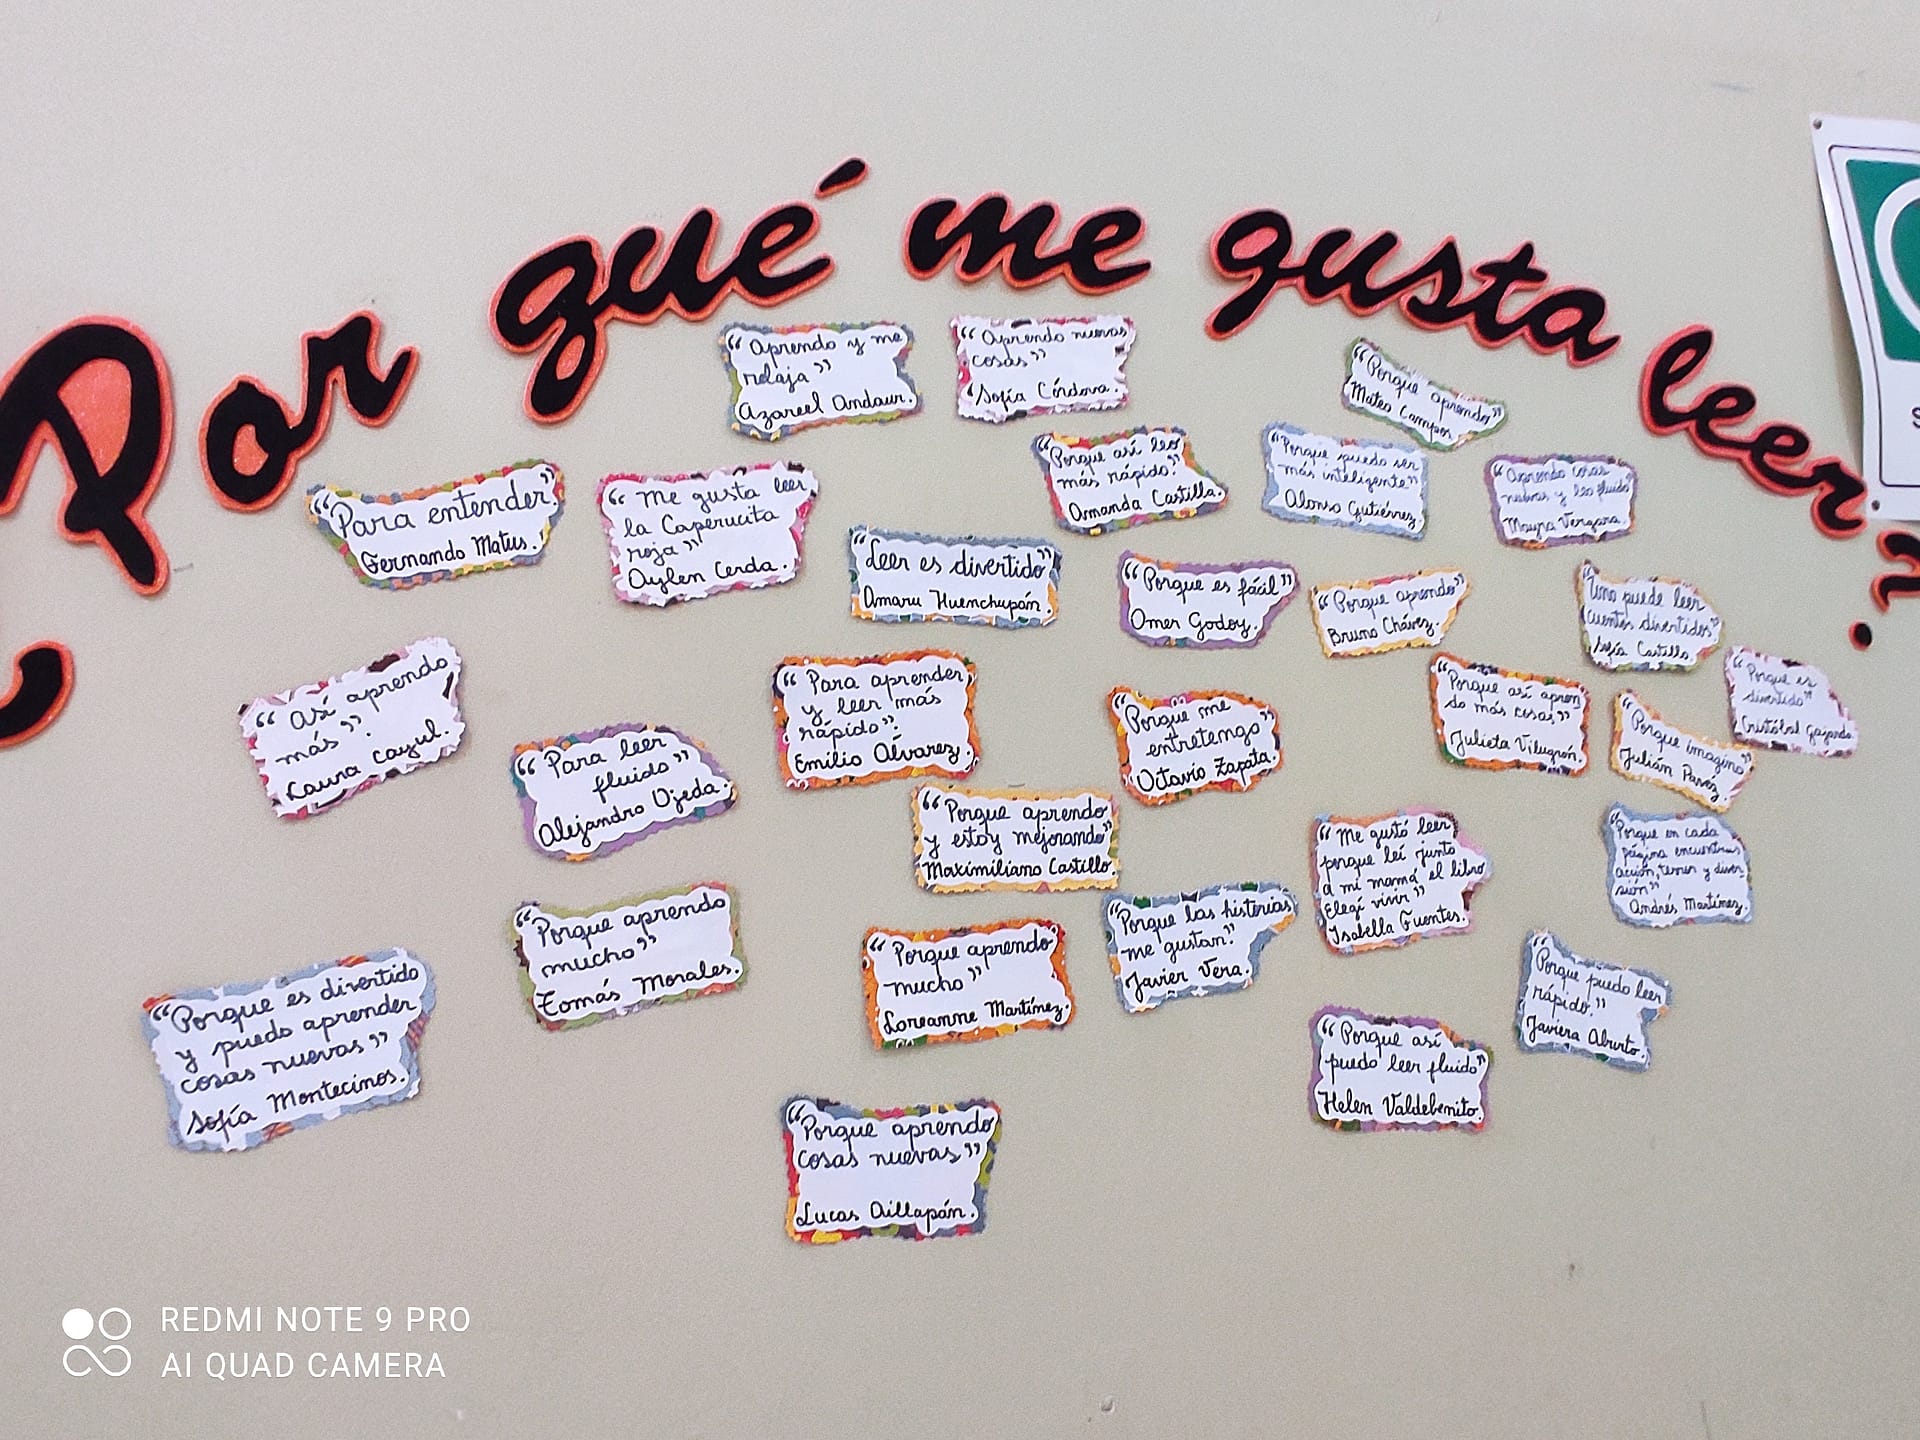 ¿Por qué me gusta leer?
"Aprendo y me
relaja"
Azareel Andaur.
"Aprendo nuevas
cosas"
Sofía Córdova.
"Porque aprendo"
Mateo Campos
"Porque así leo
más rápido"
Amanda Castilla.
"Porque puedo ser
más inteligente"
Alonso Gutiérrez.
"Aprendo cosas
nuevas y leo fluido"
Mayra Vergara.
"Para entender"
Fernando Matus.
"Me gusta leer
la Caperucita
roja"
Aylen Cerda.
"Leer es divertido"
Amaru Huenchupán.
"Porque es fácil"
Omer Godoy.
"Porque aprendo"
Bruno Chávez.
"Uno puede leer
cuentos divertidos"
Sofía Castillo
"Así aprendo
más".
Laura Cayul.
"Para leer
fluido"
Alejandro Ojeda.
"Para aprender
y leer más
rápido".
Emilio Álvarez.
"Porque me
entretengo"
Octavio Zapata.
"Porque así apren
do más cosas"
Julieta Vilugrón.
"Porque imagino"
Julián
"Porque es
divertido"
Cristóbal Gajardo.
"Porque aprendo
y estoy mejorando"
Maximiliano Castillo.
"Me gustó leer
porque leí junto
a mi mamá el libro
Elegí vivir"
Isabella Fuentes.
"Porque en cada
página encuentras
acción, terror y diver
sión"
Andrés Martínez.
"Porque aprendo
mucho"
Tomás Morales.
"Porque aprendo
mucho"
Loreanne Martínez.
"Porque las historias
me gustan."
Javier Vera.
"Porque puedo leer
rápido."
Javiera Aburto.
"Porque es divertido
y puedo aprender
cosas nuevas"
Sofía Montecinos.
"Porque así
puedo leer fluido"
Helen Valdebenito.
"Porque aprendo
cosas nuevas"
Lucas Aillapán.
S
REDMI NOTE 9 PRO
AI QUAD CAMERA